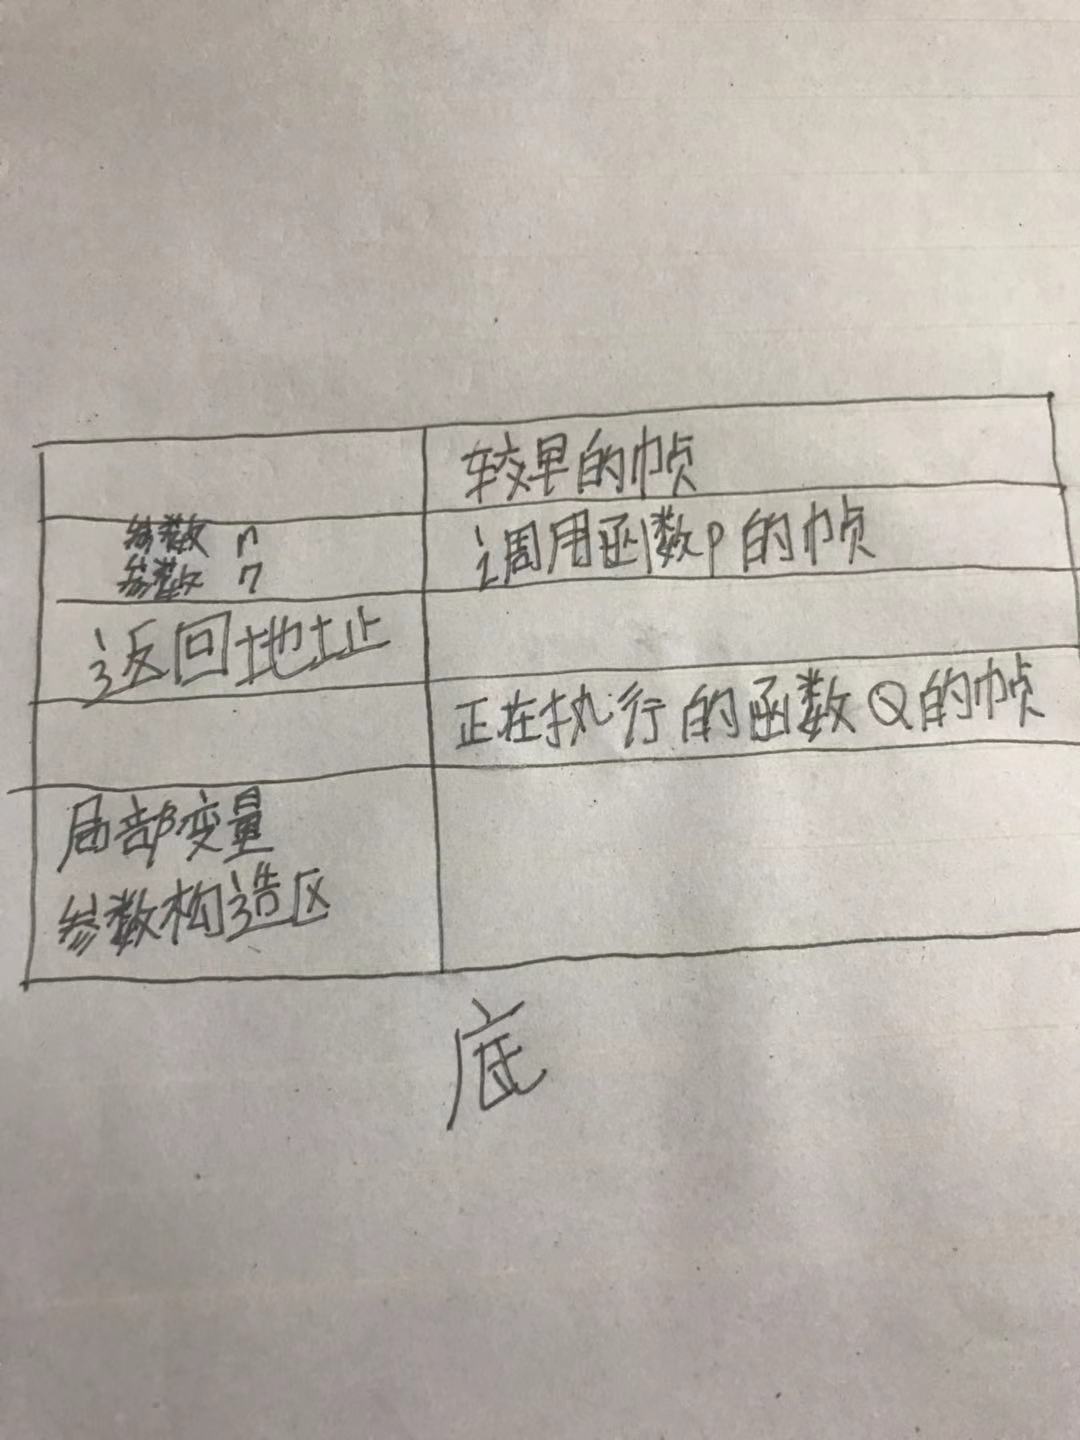 较早的帧
参数 n
参数 7
调用函数P的帧
返回地址
正在执行的函数Q的帧
局部变量
参数构造区
底